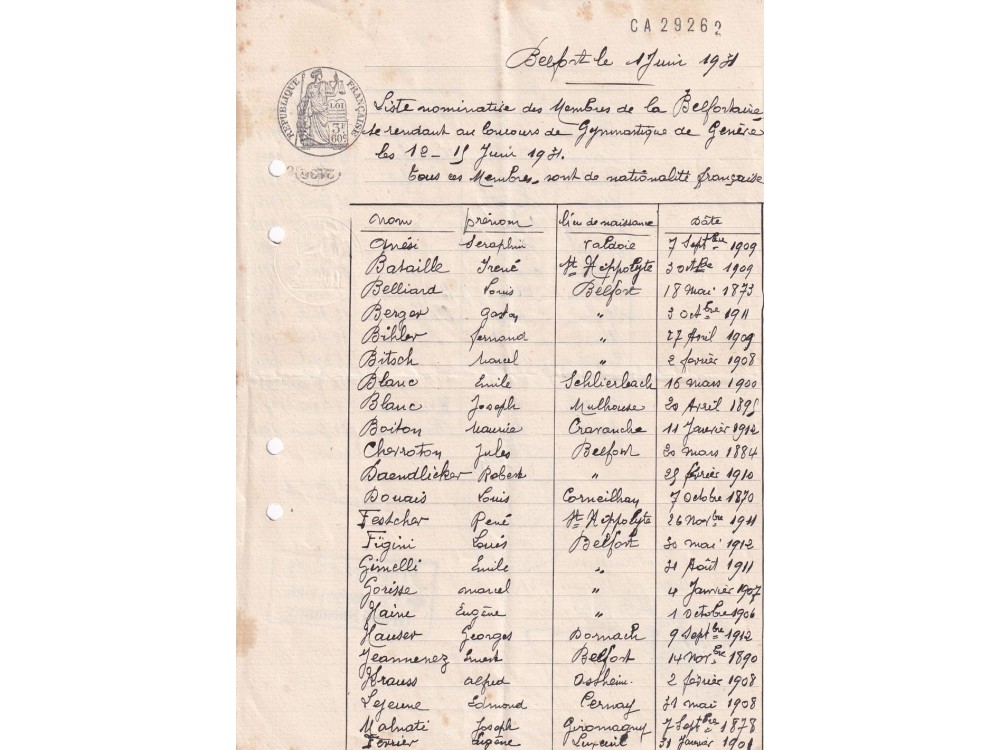 CA 29262
Belfort le 1 Juin 1931
RÉPUBLIQUE FRANÇAISE
LOI
3F
60c
Liste nominative des Membres de la Belfortaine
se rendant au Concours de Gymnastique de Genève
les 12 - 15 Juin 1931.
Tous ces Membres sont de nationalité française
nom prénom lieu de naissance Dâte
Seraphin Valdoie 7 Septbre 1909
Bataille Irené St Hippolyte 3 octbre 1909
Belliard Louis Belfort 18 mai 1873
Berger Gaston " 3 octbre 1911
Bihler fernand " 27 Avril 1909
Bitsch Marcel " 2 fevrier 1908
Blanc Emile Schlierbach 16 mars 1900
Blanc Joseph Mulhouse Avril 1895
Boiton Maurice Cravanche 11 Janvier 1912
Chevroton Jules Belfort 20 mars 1884
Daendlicker Robert " fevrier 1910
Douais Louis Corneilhan 7 Octobre 1870
Festcher René St Hippolyte 26 Novbre 1911
Figini Louis Belfort 30 mai 1912
Gimelli Emile " 31 Août 1911
Gorisse marcel " 4 Janvier 1907
Haine Eugène " 1 Octobre 1906
Hauser Georges Dornach 9 Septbre 1912
Jeannenez Ernest Belfort 14 Novbre 1890
Krauss alfred Ostheim. 2 fevrier 1908
Lejeune Edmond Cernay 31 mai 1908
Malnati Joseph Giromagny 7 Septbre 1878
Eugène Luxeuil 31 Janvier 1901